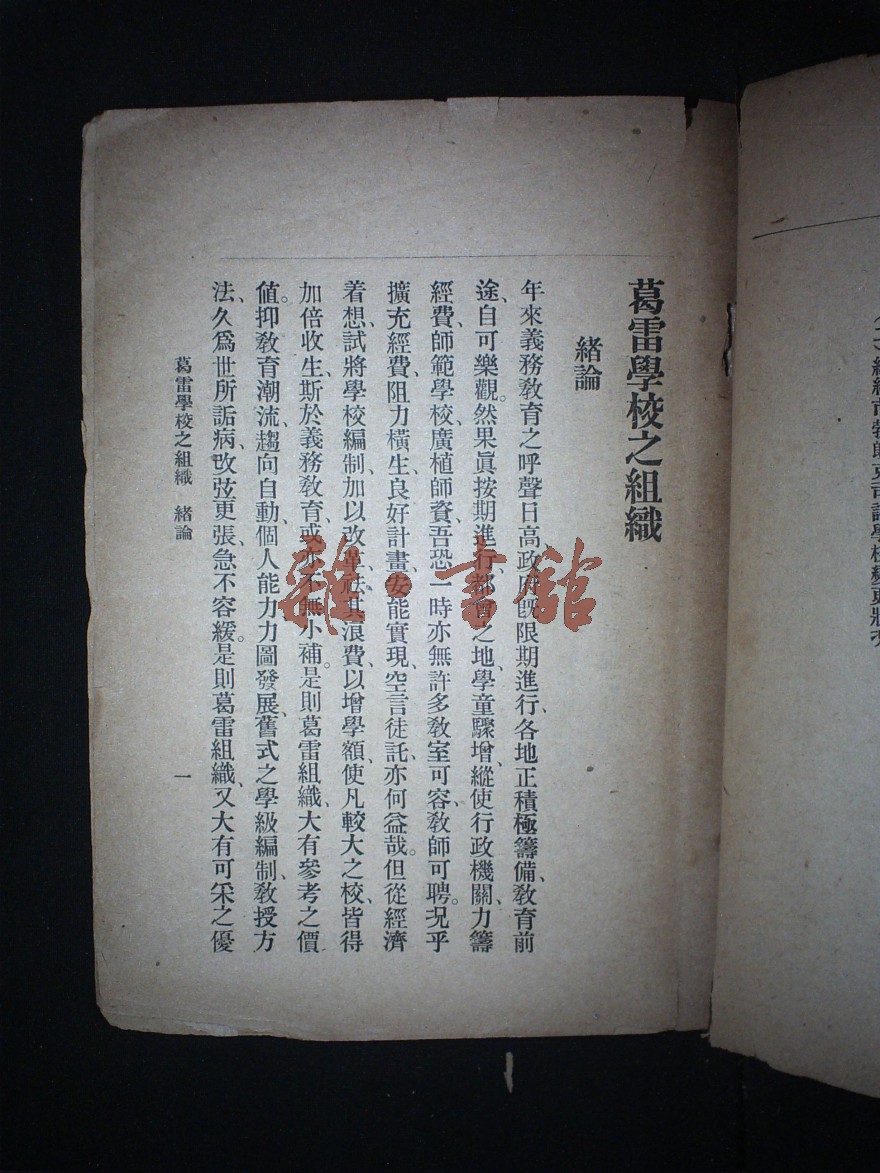 葛雷學校之組織
緒論
年來義務敎育之呼聲日高、政府旣限期進行、各地正積極籌備、敎育前
途、自可樂觀。然果眞按期進行、都會之地、學童驟增、縱使行政機關、力籌
經費、師範學校、廣植師資、吾恐一時亦無許多敎室可容、敎師可聘。况乎
擴充經費、阻力橫生、良好計畫、安能實現、空言徒託、亦何益哉。但從經濟
着想、試將學校編制、加以改革、祛其浪費、以增學額、使凡較大之校、皆得
加倍收生、斯於義務敎育、或亦不無小補。是則葛雷組織、大有參考之價
値。抑敎育潮流、趨向自動、個人能力、力圖發展、舊式之學級編制、敎授方
法、久爲世所詬病、改弦更張、急不容緩。是則葛雷組織、又大有可采之優
葛雷學校之組織 緒論
一
雜·書館